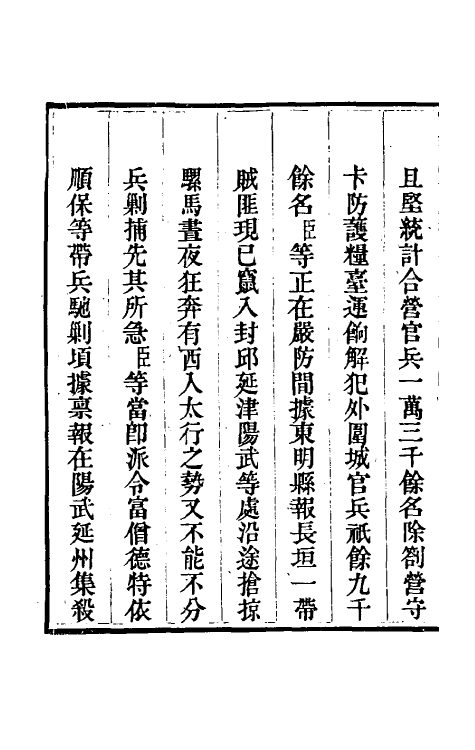 且堅統計合營官兵一萬三千餘名除劄營守
卡防護糧臺運餉解犯外圍城官兵祇餘九千
餘名臣等正在嚴防間據東明縣報長垣一帶
賊匪現已竄入封邱延津陽武等處沿途搶掠
騾馬晝夜狂奔有西入太行之勢又不能不分
兵剿捕先其所急臣等當卽派令富僧德特依
順保等帶兵馳剿頃據禀報在陽武延州集殺